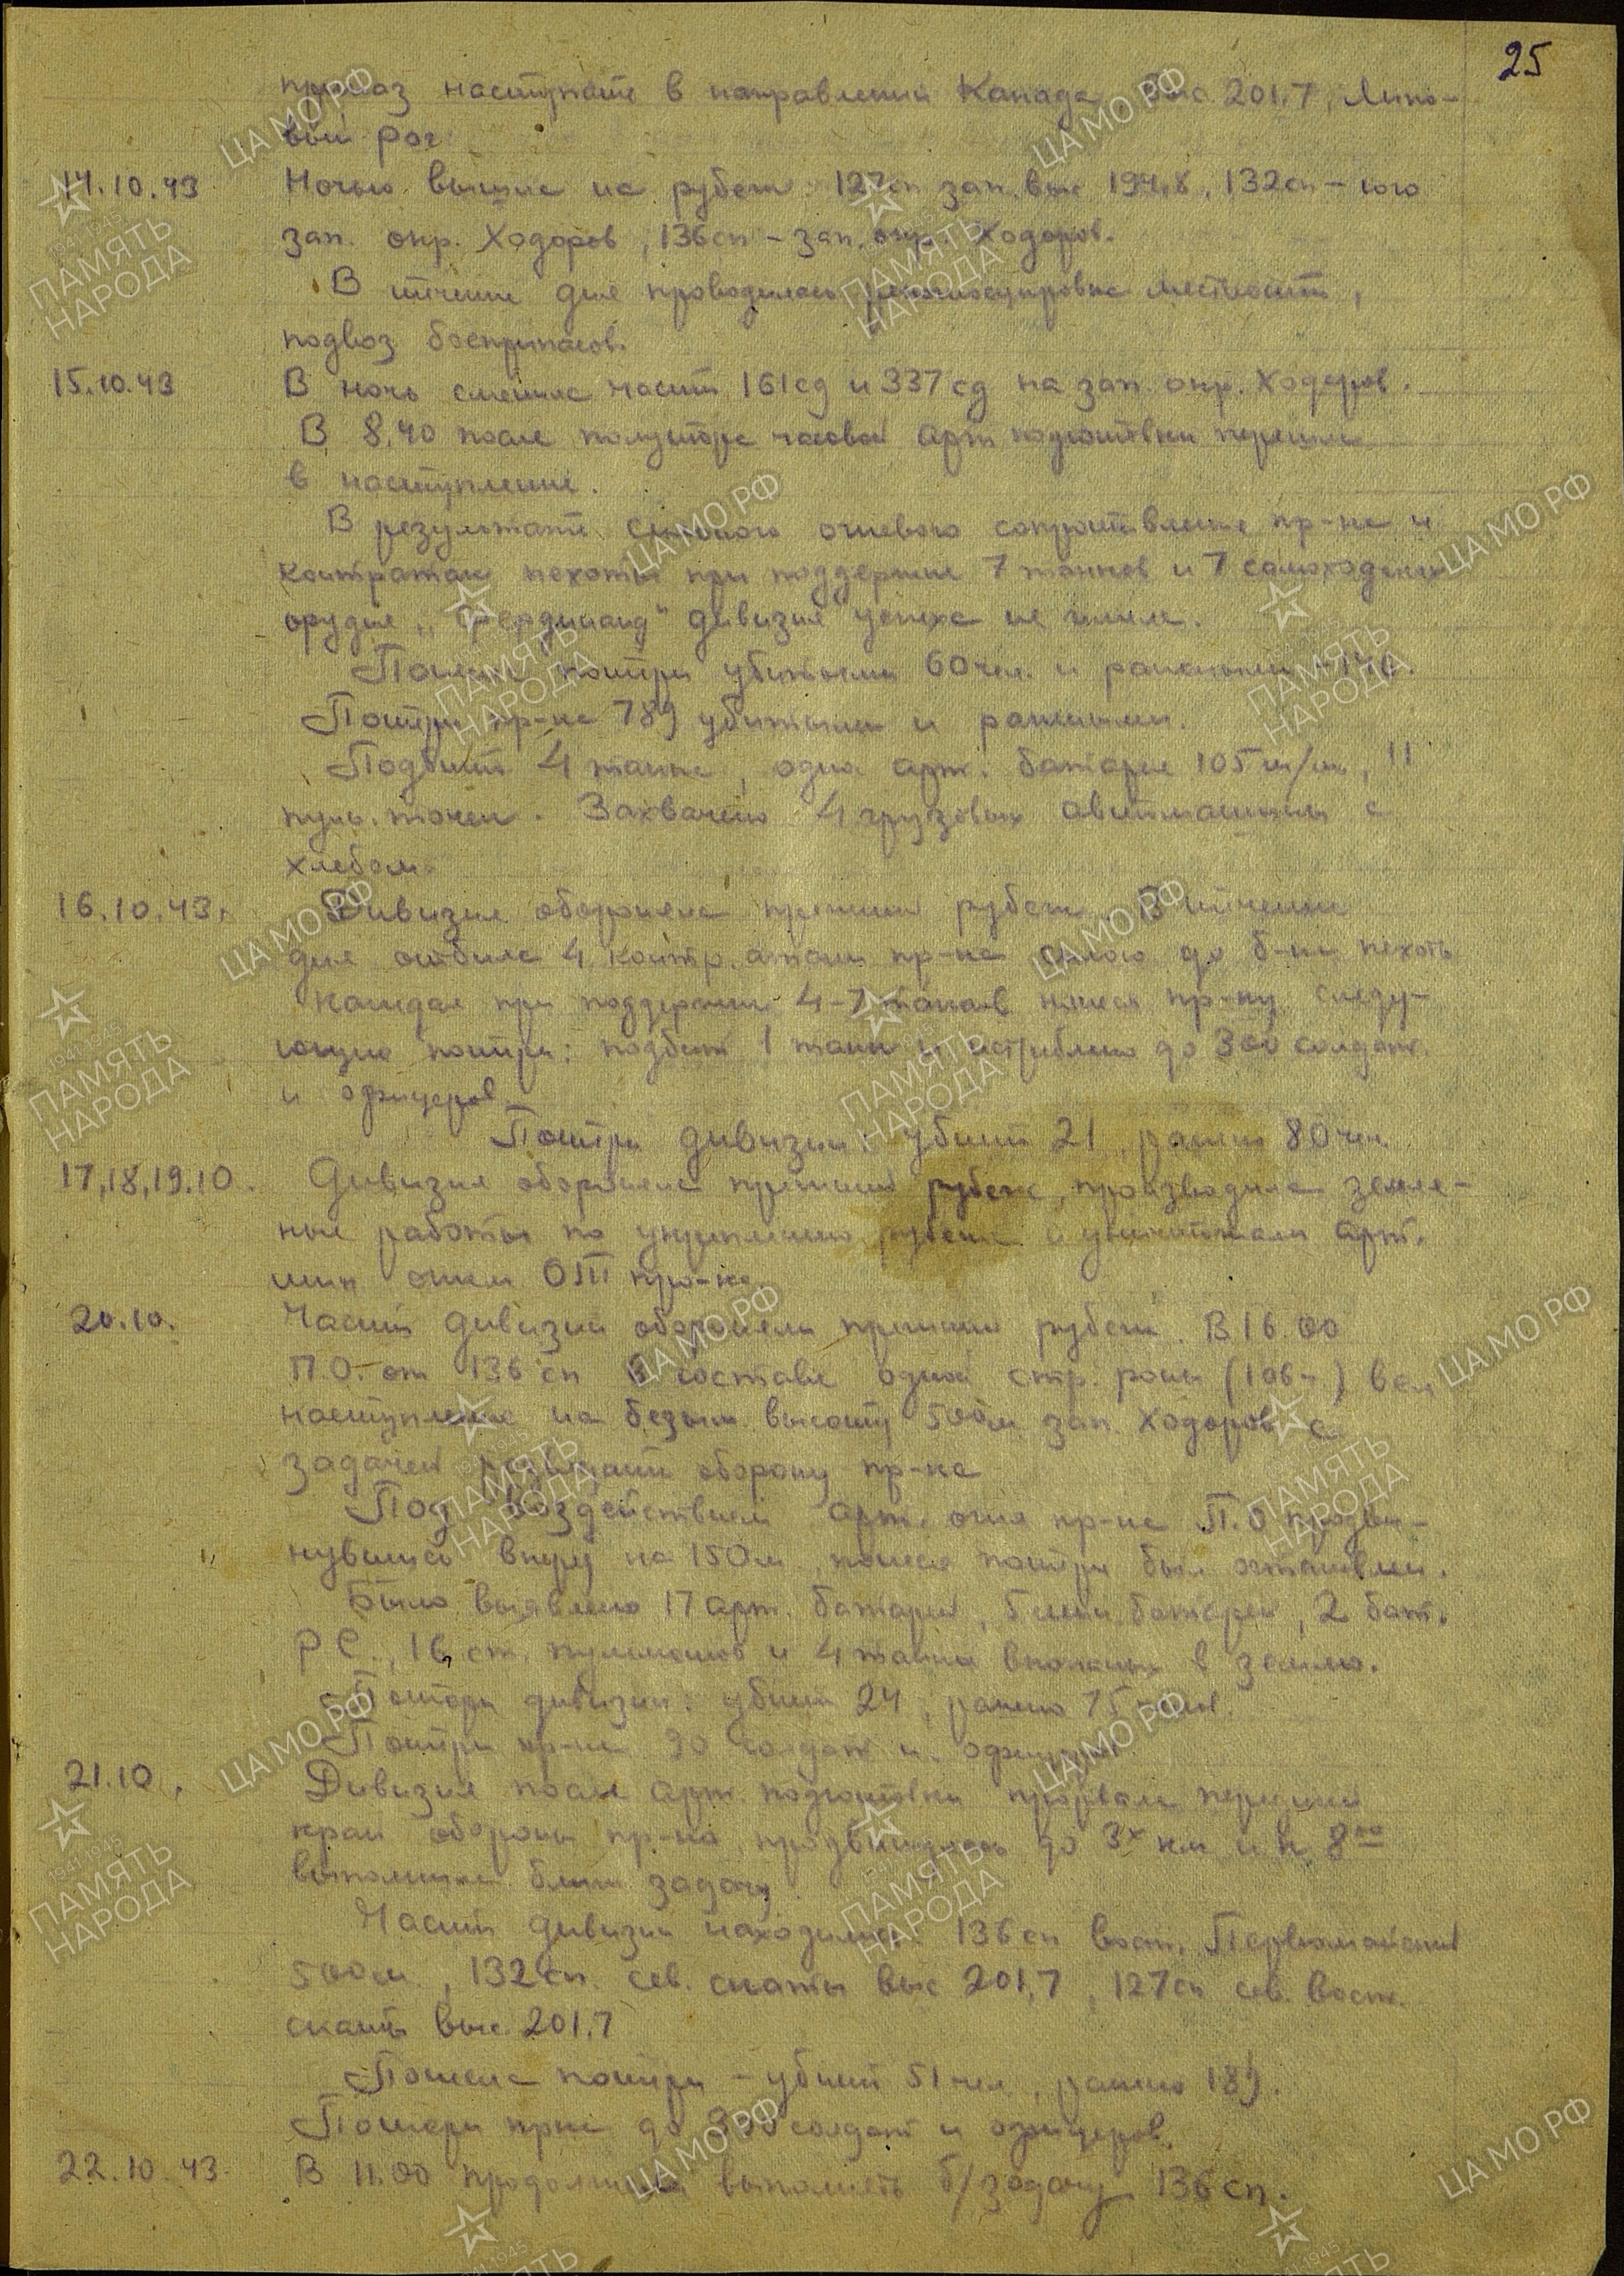 25
приказ наступать в направлении Канада, Выс. 201,7, Липо-
вый рог
14.10.43 Ночью вышла на рубеж: 127сп зап. выс 194,8, 132сп - юго
зап. окр. Ходоров, 136сп - зап. окр. Ходоров.
В течение дня проводилась рекогносцировка местности,
подвоз боеприпасов.
15.10.43 В ночь сменила части 161сд и 337сд на зап. окр. Ходоров.
В 8.40 после полутора часовой арт подготовки перешла
в наступление.
В результате сильного огневого сопротивления пр-ка и
контратак пехоты при поддержке 7 танков и 7 самоходных
орудий „Фердинанд" дивизия успеха не имела.
Понесла потери убитыми 60 чел. и ранеными
Потери пр-ка 789 убитыми и ранеными.
Подбито 4 танка, одна арт. батарея 105 м/м, 11
пул. точек. Захвачено 4 грузовых автомашины с
хлебом.
16.10.43. Дивизия обороняла прежний рубеж. В течение
дня отбила 4 контр.атаки пр-ка силою до б-на пехоты
каждая при поддержке 4-7 танков нанеся пр-ку следу-
ющие потери: подбит 1 танк и истреблено до 300 солдат
и офицеров.
Потери дивизии: убито 21, ранено 80 чел.
17,18,19.10. Дивизия обороняла прежний рубеж, производила земля-
ные работы по укреплению рубежа и уничтожала арт.
мин огнем ОТ пр-ка.
20.10. Части дивизии обороняли прежний рубеж. В 16.00
П.О. от 136 сп в составе одной стр. роты (106ч) вел
наступление на безым. высоту 500м зап. Ходоров с
задачей разведать оборону пр-ка
Под воздействием арт. огня пр-ка П.О продви-
нувшись вперед на 150м, понеся потери был остановлен.
Было выявлено 17 арт. батарей, 5 мин. батарей, 2 бат.
РС., 16 ст. пулеметов и 4 танка вкопаных в землю.
Потери дивизии: убито 24, ранено 75 челов.
Потери пр-ка 90 солдат и офицеров
21.10. Дивизия после арт. подготовки прорвала передний
край обороны пр-ка, продвинулась до 3х км и к 8 00
выполнила ближ. задачу.
Части дивизии находились: 136 сп вост. Первомайский
500м., 132сп. сев. скаты выс 201,7, 127сп сев. вост.
скаты выс. 201.7
Понесла потери - убито 51 чел., ранено 189.
Потери пр-ка до 300 солдат и офицеров.
22.10.43. В 11.00 продолжила выполнять б/задачу 136 сп.
ЦА МО РФ
1941-1945
ПАМЯТЬ
НАРОДА